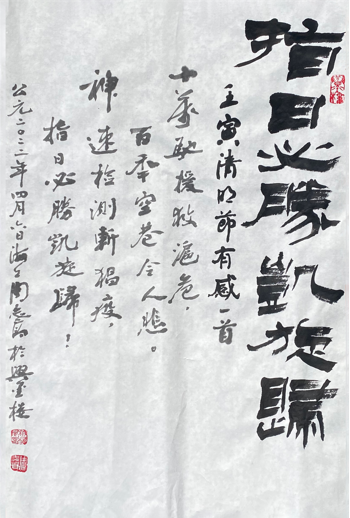 指日必勝凱旋歸
壬寅清明節有感一首
十萬馳援救滬危，
百空巷令人悲。
神速检測斬猖疫，
指日必勝凱旋歸！
公元二〇二二年四月六日海上周志高於樓